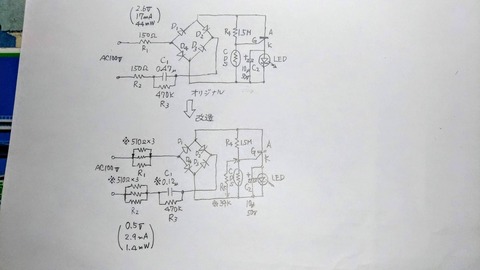 (2.6V
17mA
44mW)
D1
D2
D3
D4
150Ω
R1
AC100V
150Ω
R2
C1
0.47μ
470K
R3
R4
1.5M
CDS
C2
10μ
50V
A
G
K
LED
オリジナル
改造
※510Ω×3
R1
AC100V
※510Ω×3
R2
C1
※0.12μ
470K
R3
D1
R4
1.5M
CDS
R5
※39K
C2
10μ
50V
A
G
K
LED
(0.5V
2.9mA
1.4mW)